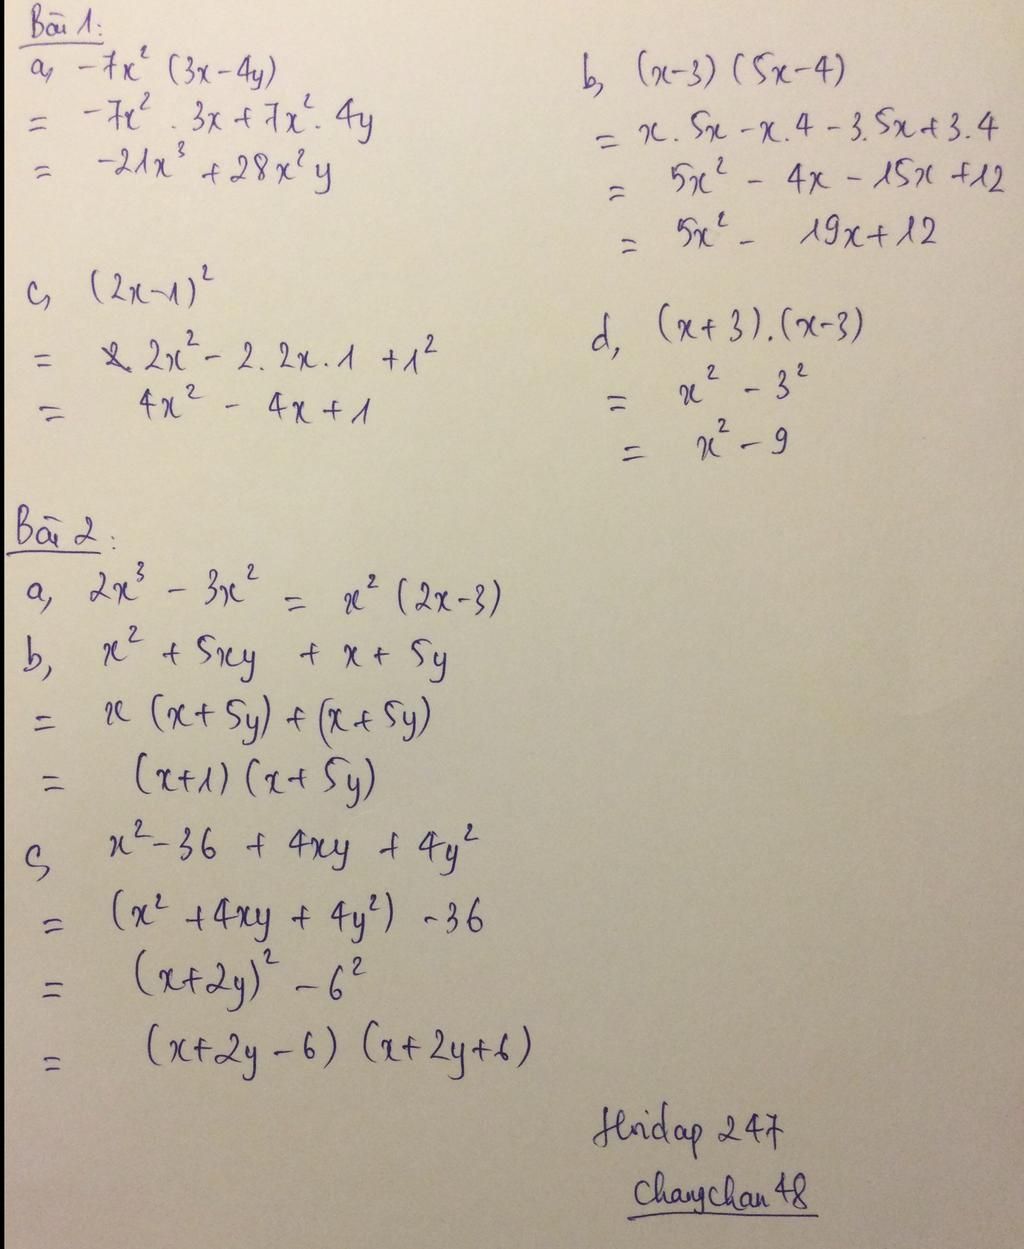 Bài 1:
a, -7x² (3x-4y)
= -7x² . 3x + 7x² . 4y
= -21x³ + 28x²y
b, (x-3) (5x-4)
= x . 5x - x . 4 - 3 . 5x + 3 . 4
= 5x² - 4x - 15x + 12
= 5x² - 19x + 12
c, (2x-1)²
= 2x² - 2 . 2x . 1 + 1²
= 4x² - 4x + 1
d, (x+3) . (x-3)
= x² - 3²
= x² - 9
Bài 2:
a, 2x³ - 3x² = x² (2x-3)
b, x² + 5xy + x + 5y
= x (x+5y) + (x+5y)
= (x+1) (x+5y)
c, x² - 36 + 4xy + 4y²
= (x² + 4xy + 4y²) - 36
= (x+2y)² - 6²
= (x+2y-6) (x+2y+6)
Hoidap 247
Changchan48